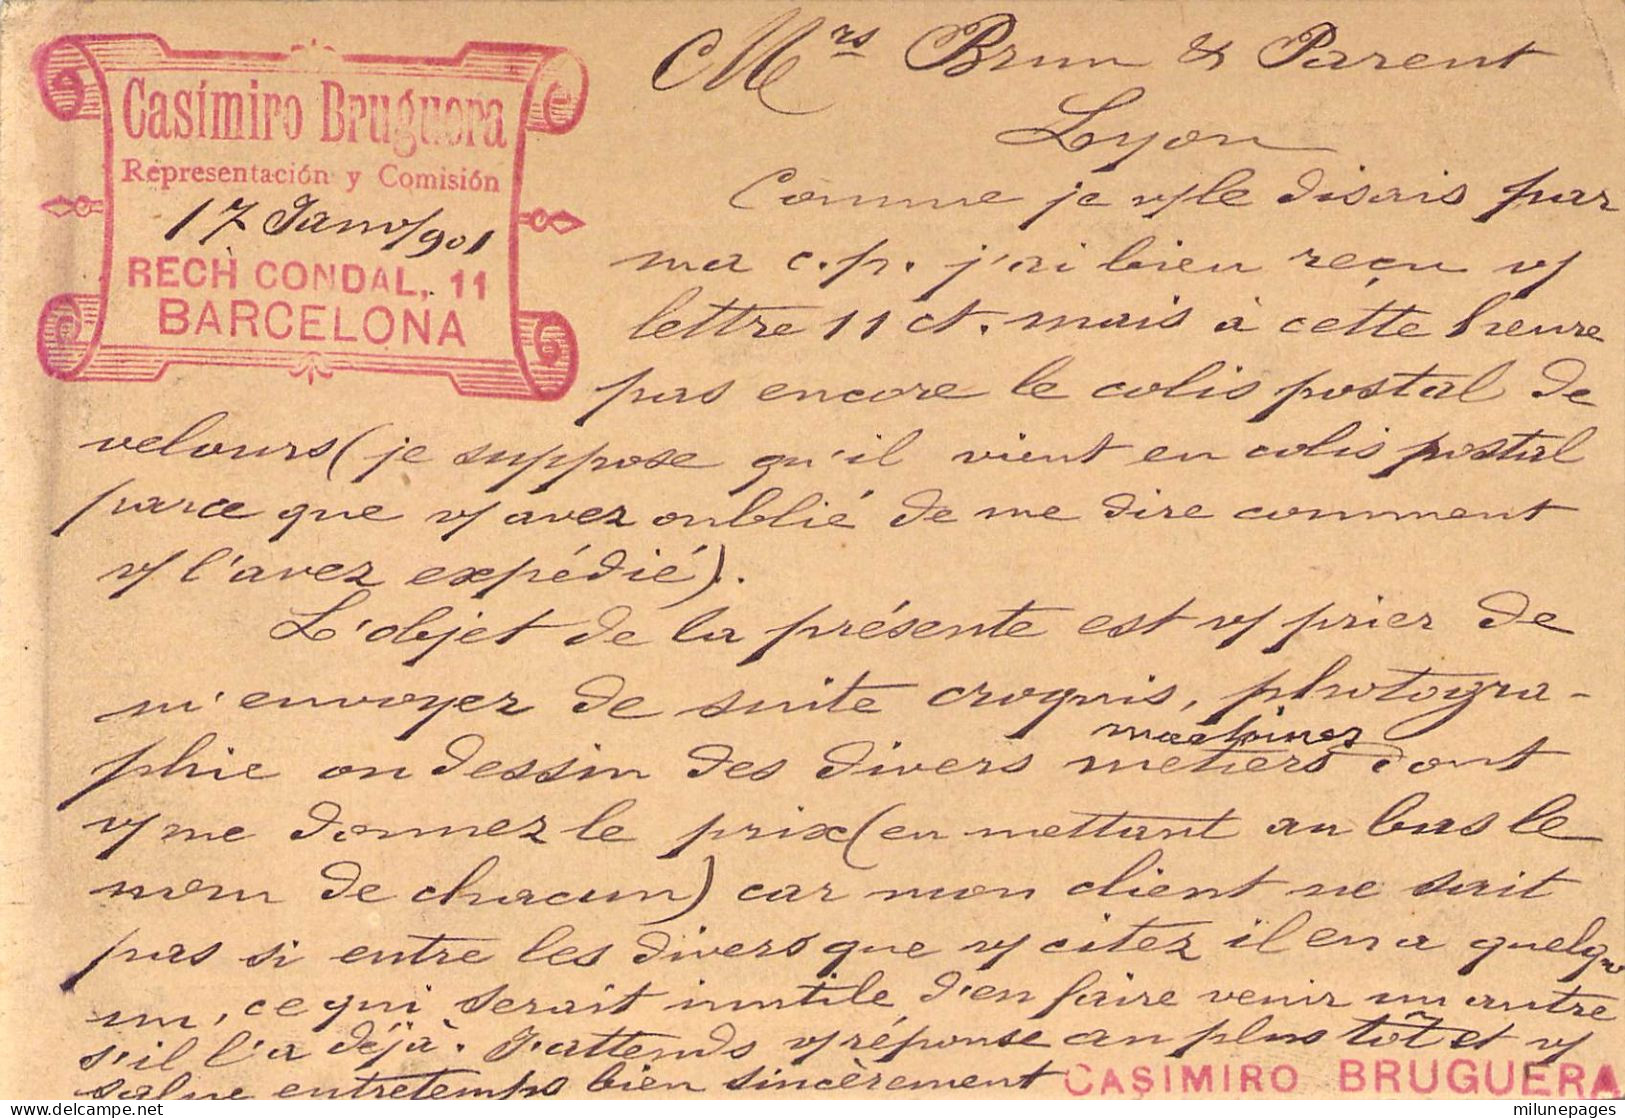 Casimiro Bruguera
Representación y Comisión
17 Janv/901
RECH CONDAL, 11
BARCELONA
Mrs Brun & Parent
Lyon
Comme je v/ le disais par
ma c.p. j'ai bien reçu v/
lettre 11 ct. mais à cette heure
pas encore le colis postal de
velours (je suppose qu'il vient en colis postal
parce que v/ avez oublié de me dire comment
v/ l'avez expédié).
L'objet de la présente est v/ prier de
m'envoyer de suite croquis, photogra-
machines
phie ou dessin des divers metiers dont
v/ me donnez le prix (en mettant au bas le
nom de chacun) car mon client ne sait
pas si entre les divers que v/ citez il en a quelqu'
un, ce qui serait inutile d'en faire venir un autre
s'il l'a déjà. J'attends v/ réponse au plus tôt et v/
salue entretemps bien sincèrement
CASIMIRO BRUGUERA
milunepages